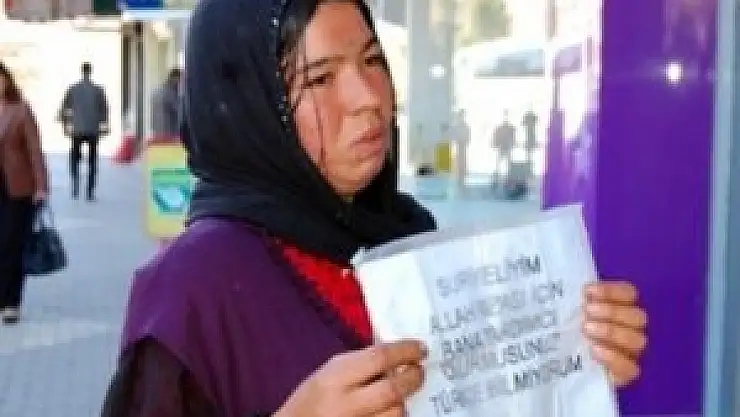 SURİYELİYİM
ALLAH RIZASI İÇİN
BANA YARDIMCI
OLURMUSUNUZ
TÜRKÇE BİLMİYORUM